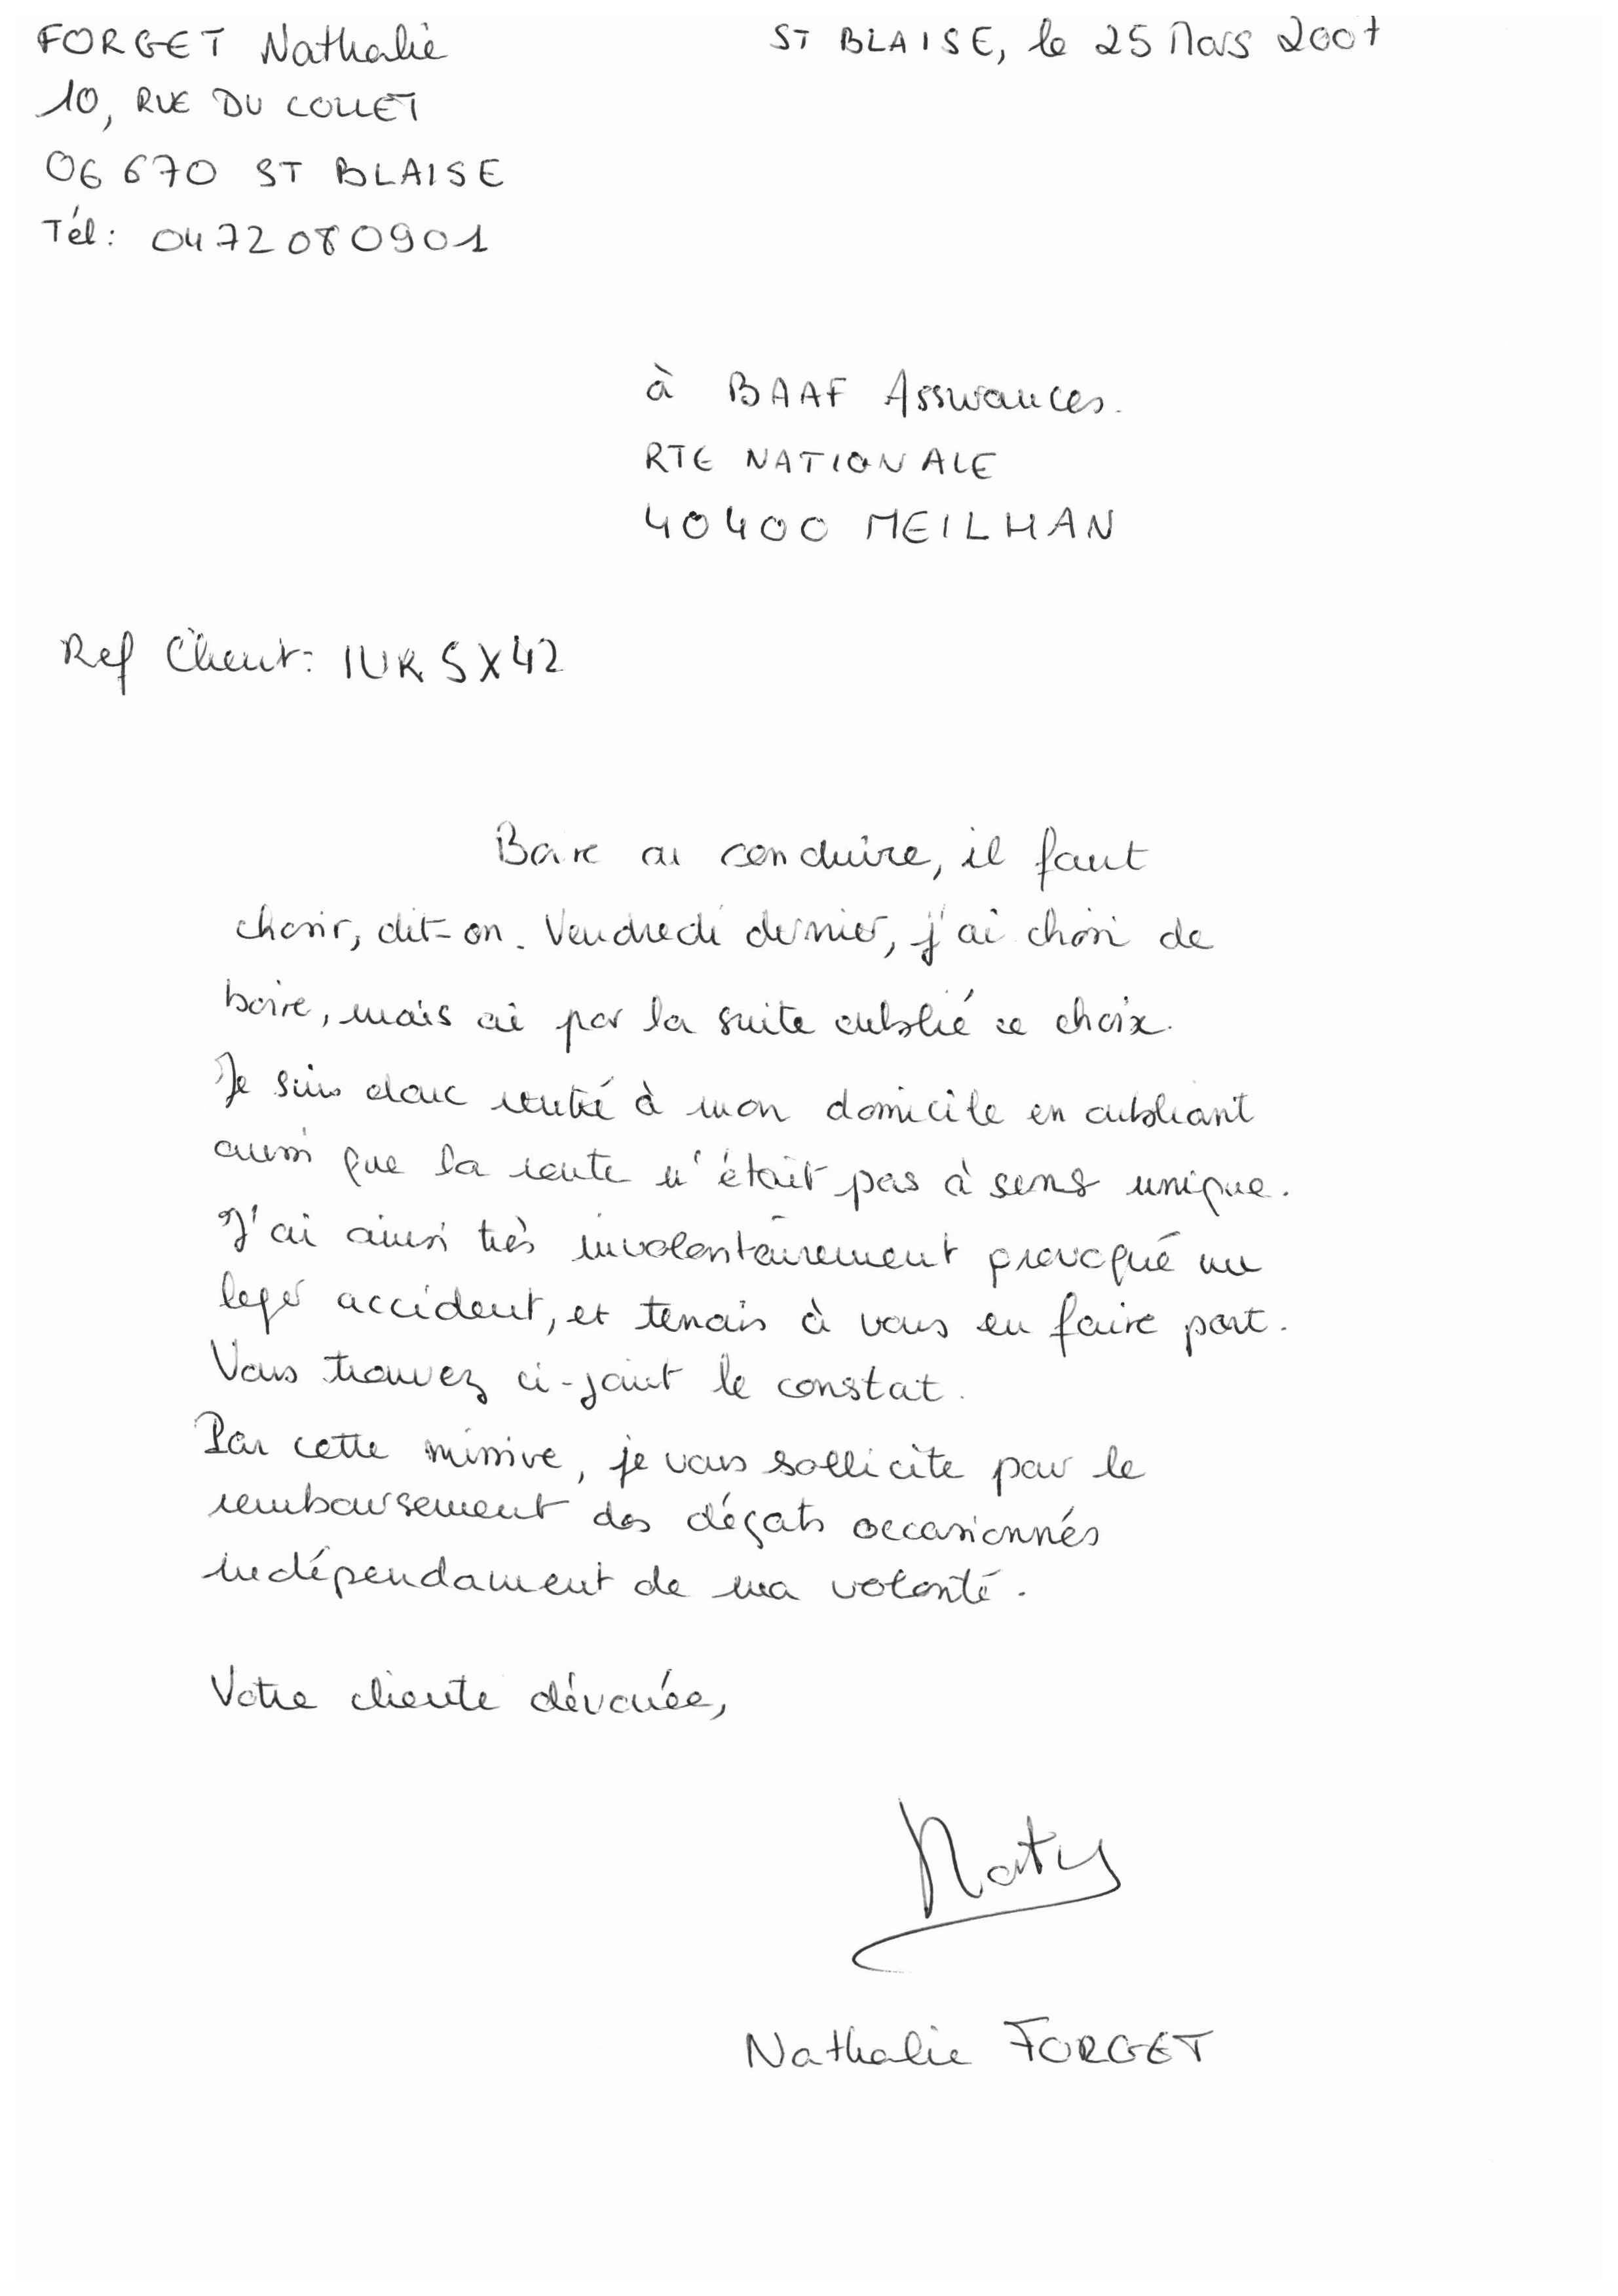 FORGET Nathalie
ST BLAISE, le 25 Mars 2007
10, RUE DU COLLET
06 670 ST BLAISE
Tél : 0472080901
à BAAF Assurances.
RTE NATIONALE
40400 MEILHAN
Ref Client : IURSX42
Boire ou conduire, il faut
choisir, dit-on. Vendredi dernier, j'ai choisi de
boire, mais ai par la suite oublié ce choix.
Je suis donc rentré à mon domicile en oubliant
aussi que la route n'était pas à sens unique.
J'ai ainsi très involontairement provoqué un
leger accident, et tenais à vous en faire part.
Vous trouvez ci-joint le constat.
Par cette missive, je vous sollicite pour le
remboursement des dégats occasionnés
indépendament de ma volonté.
Votre cliente dévouée,
Naty
Nathalie FORGET